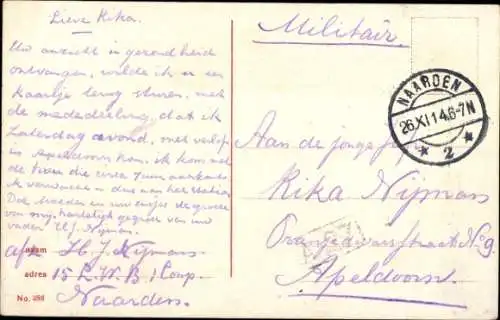 Lieve Rika.
Uw ansicht in gezondheid
ontvangen, wilde ik u een
kaartje terug sturen, met
de mededeeling, dat ik
Zaterdag avond, met verlof
in Apeldoorn kom, ik kom met
de trein die circa 7 uur aankomt
ik verwacht u dus aan het station
van mij, hartelijk gegroet van uw
vader H.J. Nijman.
afz
naam H. J. Nijman
adres 15 L.W.B. 1 Comp.
Naarden.
No. 298
Militair.
NAARDEN
26.XI.14.6-7N
* 2 *
Aan de jonge
Rika Nijman
Oranjedwarsstraat No 9.
Apeldoorn.